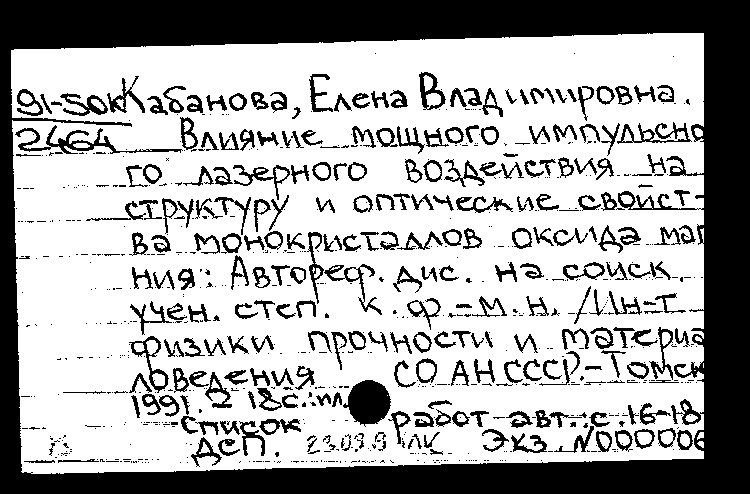 91-50к Кабанова, Елена Владимировна.
2464 Влияние мощного импульсно
го лазерного воздействия на
структуру и оптические свойст-
ва монокристаллов оксида маг
ния: Автореф. дис. на соиск.
учен. степ. к.ф.-м.н. /Ин-т
физики прочности и материа
ловедения СО АН СССР.-Томск
1991. 18с.:ил.
Список работ авт.:с.16-18
ДСП. 23.09.9 Экз. N000006